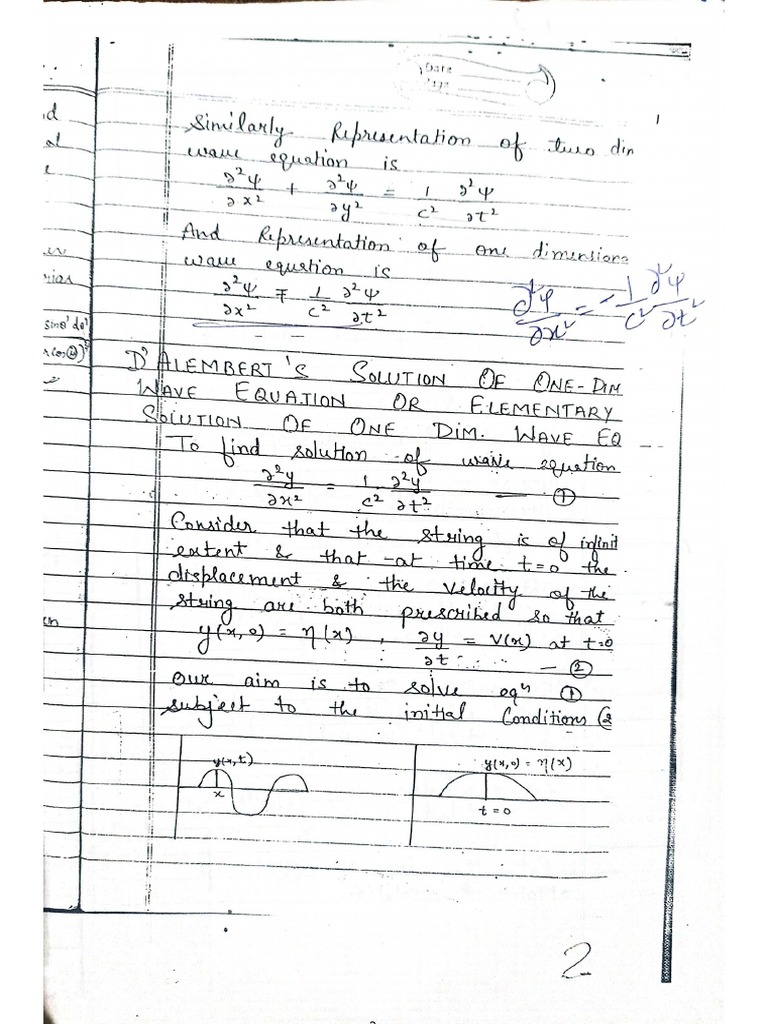 Date
1
Similarly Representation of two dim
wave equation is
∂²ψ/∂x² + ∂²ψ/∂y² = 1/c² ∂²ψ/∂t²
And Representation of one dimensiona
wave equation is
∂²ψ/∂x² = 1/c² ∂²ψ/∂t²
∂²ψ/∂x² = -1/c² ∂²ψ/∂t²
D'ALEMBERT'S SOLUTION OF ONE-DIM
WAVE EQUATION OR ELEMENTARY
SOLUTION OF ONE DIM. WAVE EQ
To find solution of wave equation
∂²y/∂x² = 1/c² ∂²y/∂t² — ①
Consider that the string is of infinit
extent & that at time t=0 the
displacement & the velocity of the
string are both prescribed so that
y(x,0) = η(x), ∂y/∂t = v(x) at t=0
— ②
Our aim is to solve eqⁿ ①
subject to the initial Conditions (2
y(x,t)
x
y(x,0) = η(x)
t=0
2
sinθ' dθ'